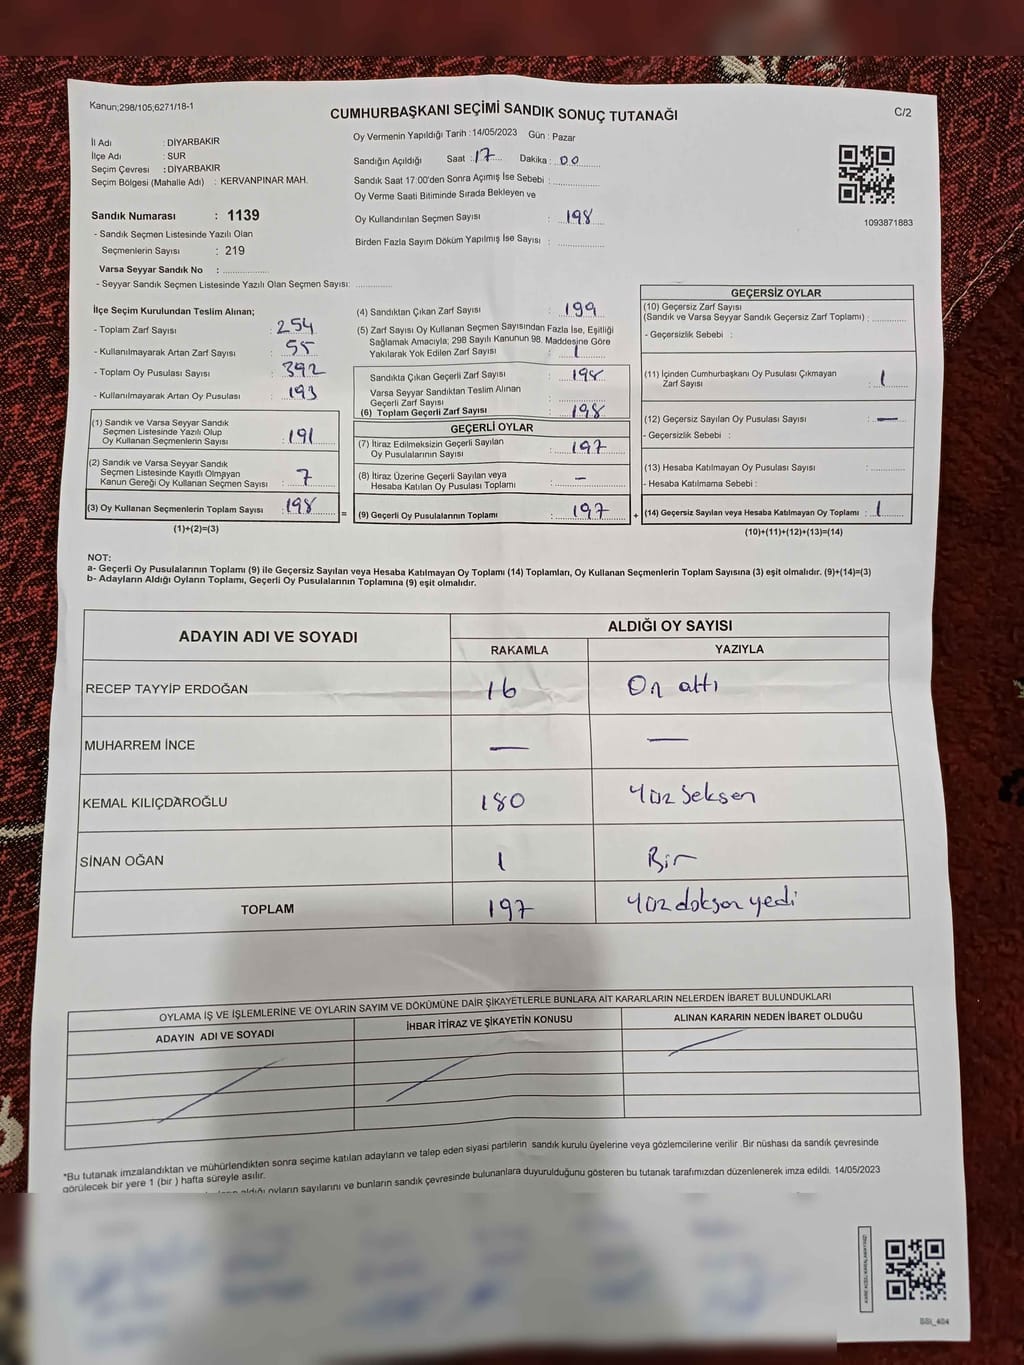 Kanun;298/105,6271/18-1
CUMHURBAŞKANI SEÇİMİ SANDIK SONUÇ TUTANAĞI
C/2
İl Adı : DİYARBAKIR
İlçe Adı : SUR
Seçim Çevresi : DİYARBAKIR
Seçim Bölgesi (Mahalle Adı) : KERVANPINAR MAH.
Sandık Numarası : 1139
- Sandık Seçmen Listesinde Yazılı Olan
Seçmenlerin Sayısı : 219
Varsa Seyyar Sandık No :
- Seyyar Sandık Seçmen Listesinde Yazılı Olan Seçmen Sayısı:
Oy Vermenin Yapıldığı Tarih : 14/05/2023 Gün : Pazar
Sandığın Açıldığı Saat : 17 Dakika : 00
Sandık Saat 17:00'den Sonra Açılmış İse Sebebi :
Oy Verme Saati Bitiminde Sırada Bekleyen ve
Oy Kullandırılan Seçmen Sayısı : 198
Birden Fazla Sayım Döküm Yapılmış İse Sayısı :
1093871883
İlçe Seçim Kurulundan Teslim Alınan;
- Toplam Zarf Sayısı : 254
- Kullanılmayarak Artan Zarf Sayısı : 55
- Toplam Oy Pusulası Sayısı : 392
- Kullanılmayarak Artan Oy Pusulası : 193
(1) Sandık ve Varsa Seyyar Sandık
Seçmen Listesinde Yazılı Olup
Oy Kullanan Seçmenlerin Sayısı : 191
(2) Sandık ve Varsa Seyyar Sandık
Seçmen Listesinde Kayıtlı Olmayan
Kanun Gereği Oy Kullanan Seçmen Sayısı : 7
(3) Oy Kullanan Seçmenlerin Toplam Sayısı : 198
(1)+(2)=(3)
(4) Sandıktan Çıkan Zarf Sayısı : 199
(5) Zarf Sayısı Oy Kullanan Seçmen Sayısından Fazla İse, Eşitliği
Sağlamak Amacıyla; 298 Sayılı Kanunun 98. Maddesine Göre
Yakılarak Yok Edilen Zarf Sayısı : 1
Sandıkta Çıkan Geçerli Zarf Sayısı : 198
Varsa Seyyar Sandıktan Teslim Alınan
Geçerli Zarf Sayısı :
(6) Toplam Geçerli Zarf Sayısı : 198
GEÇERLİ OYLAR
(7) İtiraz Edilmeksizin Geçerli Sayılan
Oy Pusulalarının Sayısı : 197
(8) İtiraz Üzerine Geçerli Sayılan veya
Hesaba Katılan Oy Pusulası Toplamı : —
= (9) Geçerli Oy Pusulalarının Toplamı : 197
GEÇERSİZ OYLAR
(10) Geçersiz Zarf Sayısı
(Sandık ve Varsa Seyyar Sandık Geçersiz Zarf Toplamı) :
- Geçersizlik Sebebi :
(11) İçinden Cumhurbaşkanı Oy Pusulası Çıkmayan
Zarf Sayısı : 1
(12) Geçersiz Sayılan Oy Pusulası Sayısı : —
- Geçersizlik Sebebi :
(13) Hesaba Katılmayan Oy Pusulası Sayısı :
- Hesaba Katılmama Sebebi :
+ (14) Geçersiz Sayılan veya Hesaba Katılmayan Oy Toplamı : 1
(10)+(11)+(12)+(13)=(14)
NOT:
a- Geçerli Oy Pusulalarının Toplamı (9) ile Geçersiz Sayılan veya Hesaba Katılmayan Oy Toplamı (14) Toplamları, Oy Kullanan Seçmenlerin Toplam Sayısına (3) eşit olmalıdır. (9)+(14)=(3)
b- Adayların Aldığı Oyların Toplamı, Geçerli Oy Pusulalarının Toplamına (9) eşit olmalıdır.
ADAYIN ADI VE SOYADI ALDIĞI OY SAYISI
RAKAMLA YAZIYLA
RECEP TAYYİP ERDOĞAN 16 On altı
MUHARREM İNCE — —
KEMAL KILIÇDAROĞLU 180 Yüz Seksen
SİNAN OĞAN 1 Bir
TOPLAM 197 Yüz doksan yedi
OYLAMA İŞ VE İŞLEMLERİNE VE OYLARIN SAYIM VE DÖKÜMÜNE DAİR ŞİKAYETLERLE BUNLARA AİT KARARLARIN NELERDEN İBARET BULUNDUKLARI
ADAYIN ADI VE SOYADI İHBAR İTİRAZ VE ŞİKAYETİN KONUSU ALINAN KARARIN NEDEN İBARET OLDUĞU
*Bu tutanak imzalandıktan ve mühürlendikten sonra seçime katılan adayların ve talep eden siyasi partilerin sandık kurulu üyelerine veya gözlemcilerine verilir. Bir nüshası da sandık çevresinde
görülecek bir yere 1 (bir ) hafta süreyle asılır.
aldığı oyların sayılarını ve bunların sandık çevresinde bulunanlara duyurulduğunu gösteren bu tutanak tarafımızdan düzenlenerek imza edildi. 14/05/2023